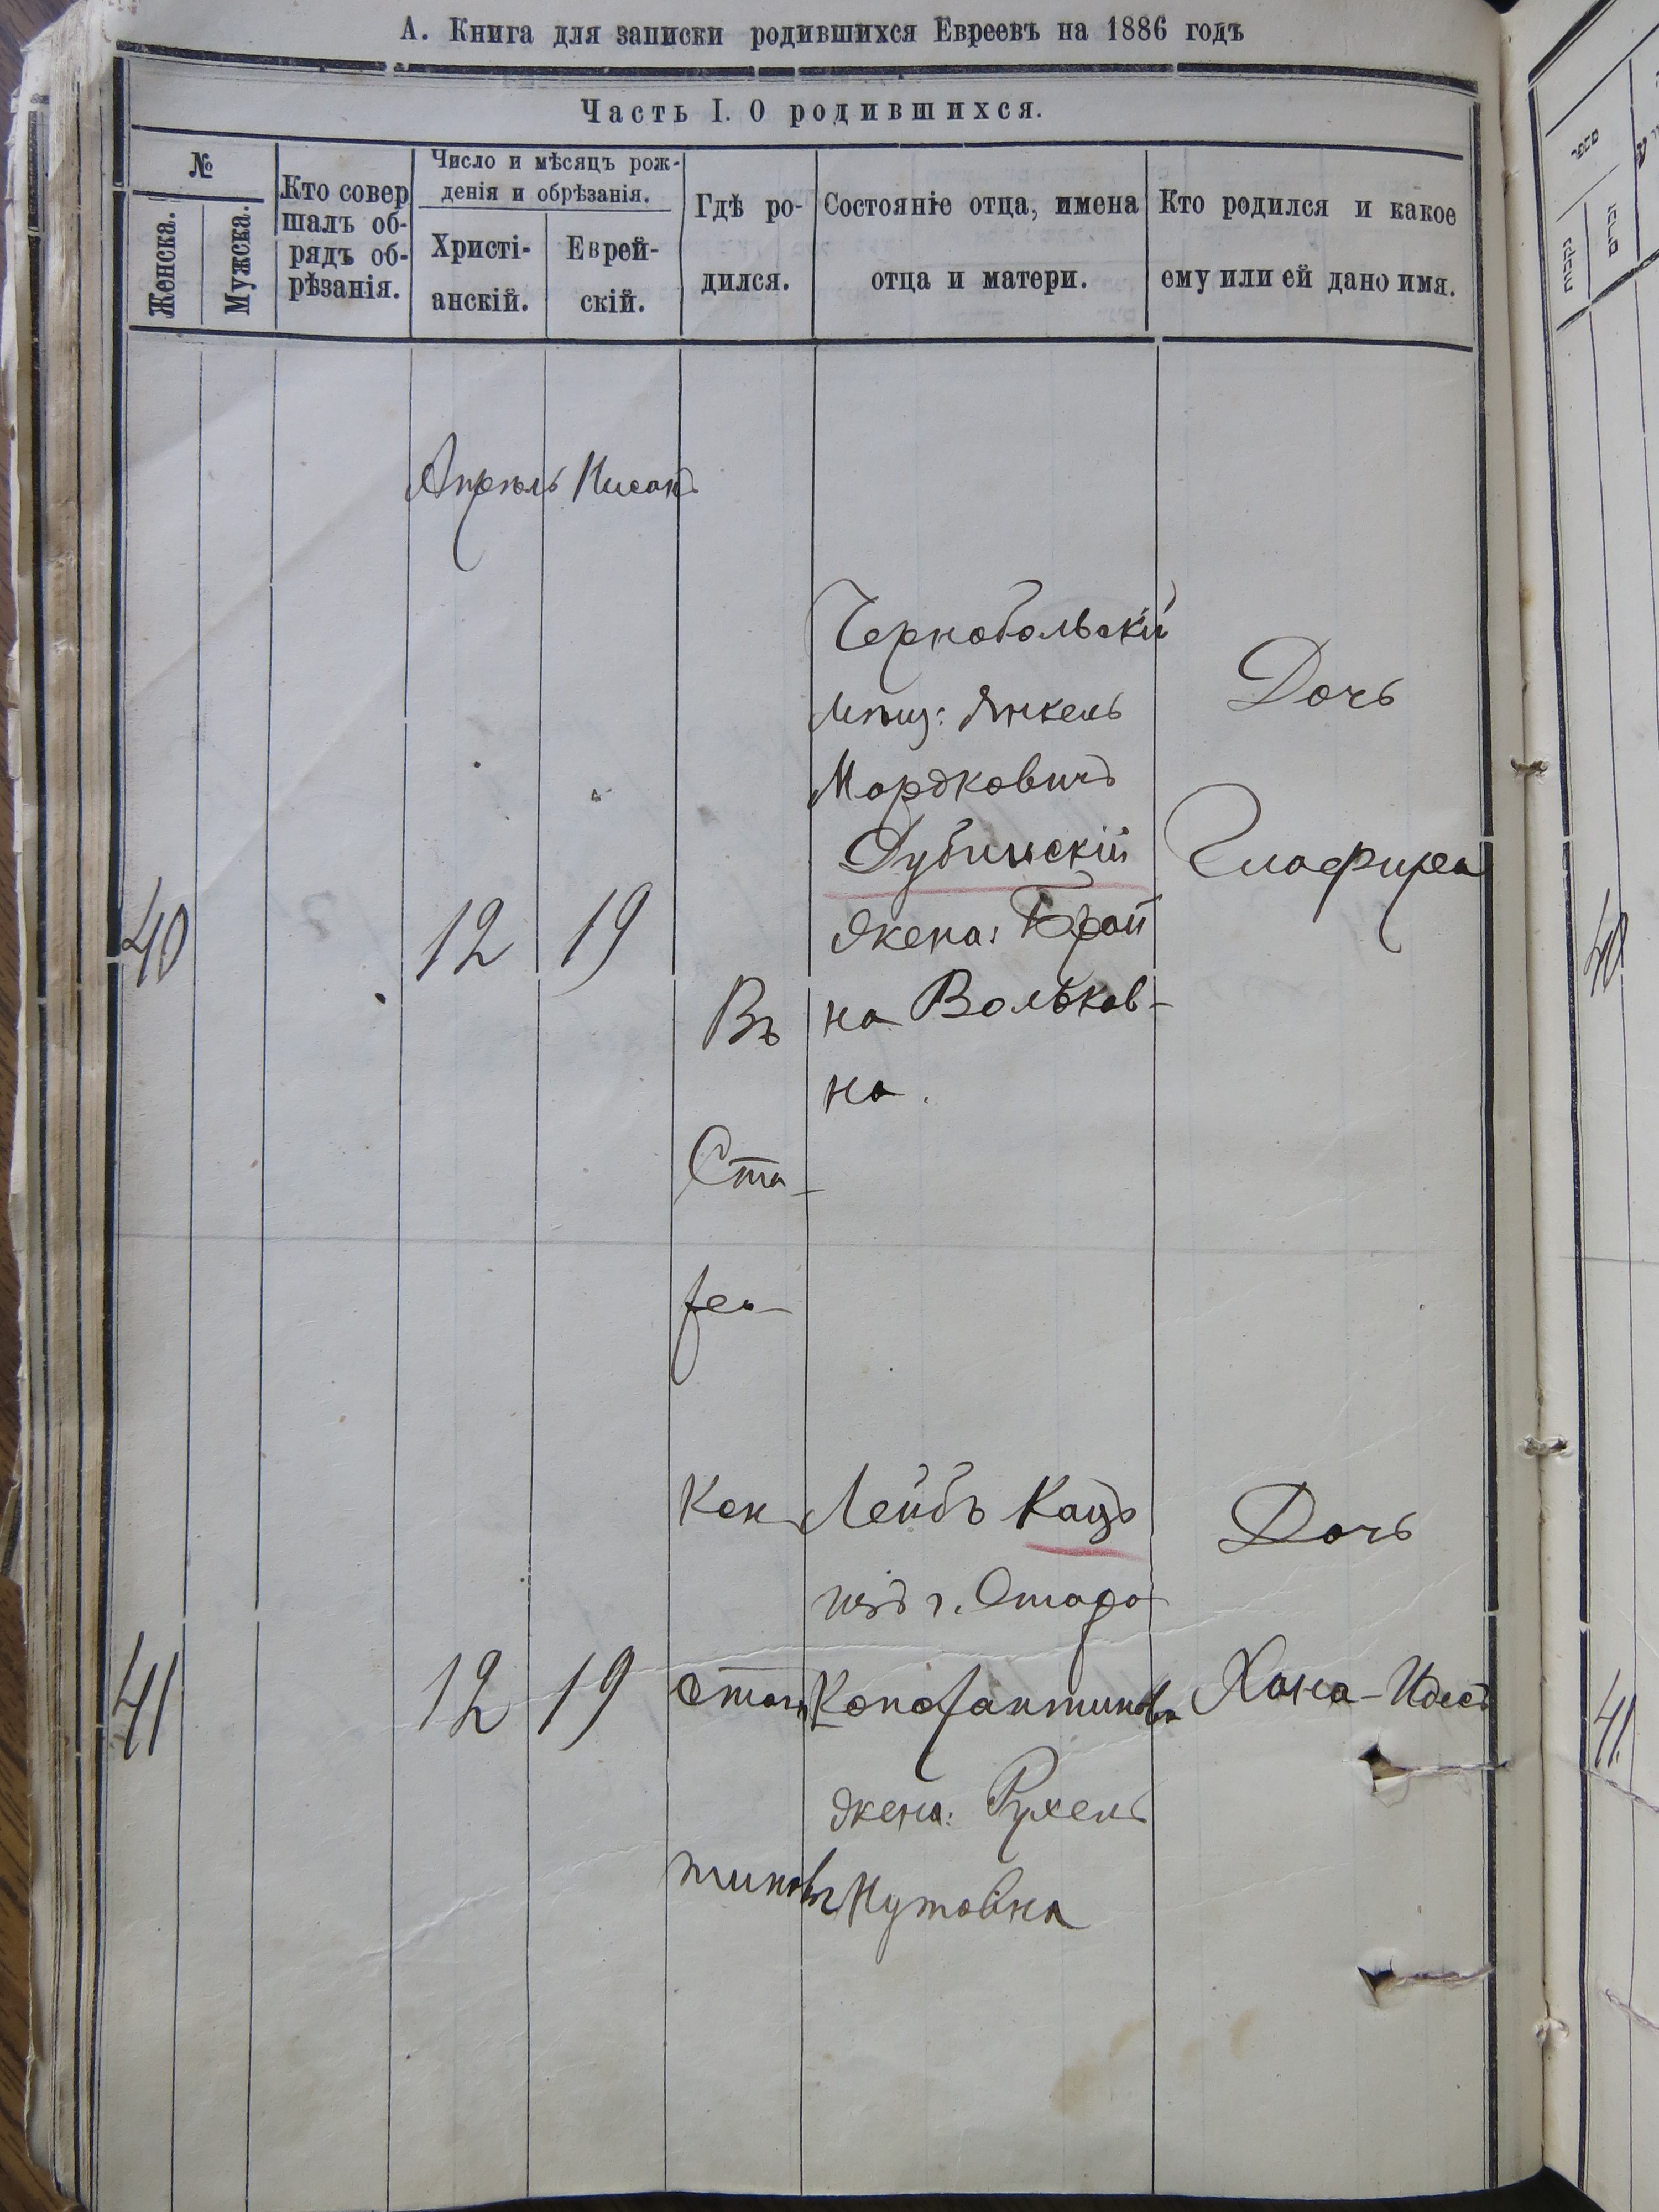 А. Книга для записки родившихся Евреевъ на 1886 годъ
Часть I. О родившихся.
№
Женска.
Мужска.
Кто совер
шалъ об-
рядъ об-
рѣзанія.
Число и мѣсяцъ рож-
денія и обрѣзанія.
Христі-
анскій.
Еврей-
скій.
Гдѣ ро-
дился.
Состояніе отца, имена
отца и матери.
Кто родился и какое
ему или ей дано имя.
Апрель Нисанъ
40
12
19
Чернобольскій
мѣщ: Янкель
Мордковичъ
Дубинскій
жена: Брай
на Вольков-
на.
Дочь
Глафира
Въ
Ста-
ро-
Кон
стан
тиновѣ
41
12
19
Лейбъ Кацъ
изъ г. Старо
Константинова
жена: Рухель
Нутовна
Дочь
Хана-Идесъ
מספר
נקבות
זכרים
40
41